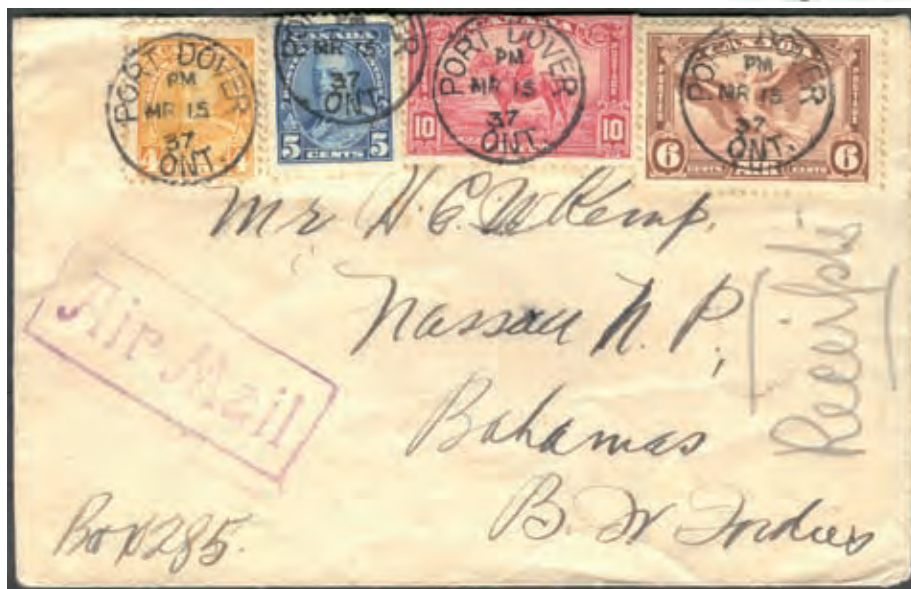 PORT DOVER
PM
MR 15
37
ONT.
4 4
CANADA
MR 15
37
ONT.
5 CENTS 5
PORT DOVER
PM
MR 15
37
ONT.
10 10
PORT DOVER
PM
MR 15
37
ONT.
6 AIR 6
Mr H. E. W Kemp,
Nassau N. P.
Bahamas
B. W Indies
Air Mail
Box 285.
Receipts